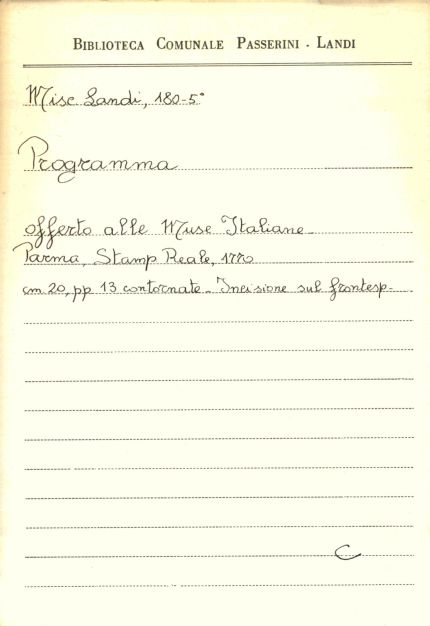 BIBLIOTECA COMUNALE PASSERINI - LANDI
Misc Landi, 180-5°
Programma
offerto alle Muse Italiane.
Parma, Stamp Reale, 1770
cm 20, pp 13 contornate - Incisione sul frontesp.
C